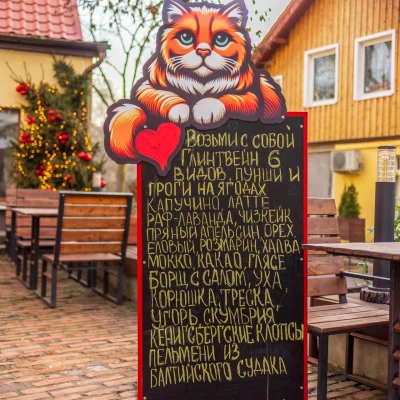 Возьми с собой
Глинтвейн 6
видов, пунши и
проги на ягодах
капучино, латте
раф-лаванда, чизкейк
пряный апельсин, орех
еловый, розмарин, халва
мокко, какао, глясе
борщ с салом, уха
корюшка, треска,
угорь, скумбрия
кенигсбергские клопсы
пельмени из
балтийского судака